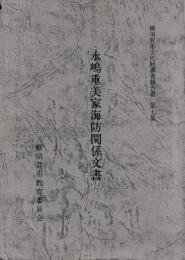 横須賀市文化財調査報告書 第七集
永嶋重美家海防関係文書
横須賀市教育委員会